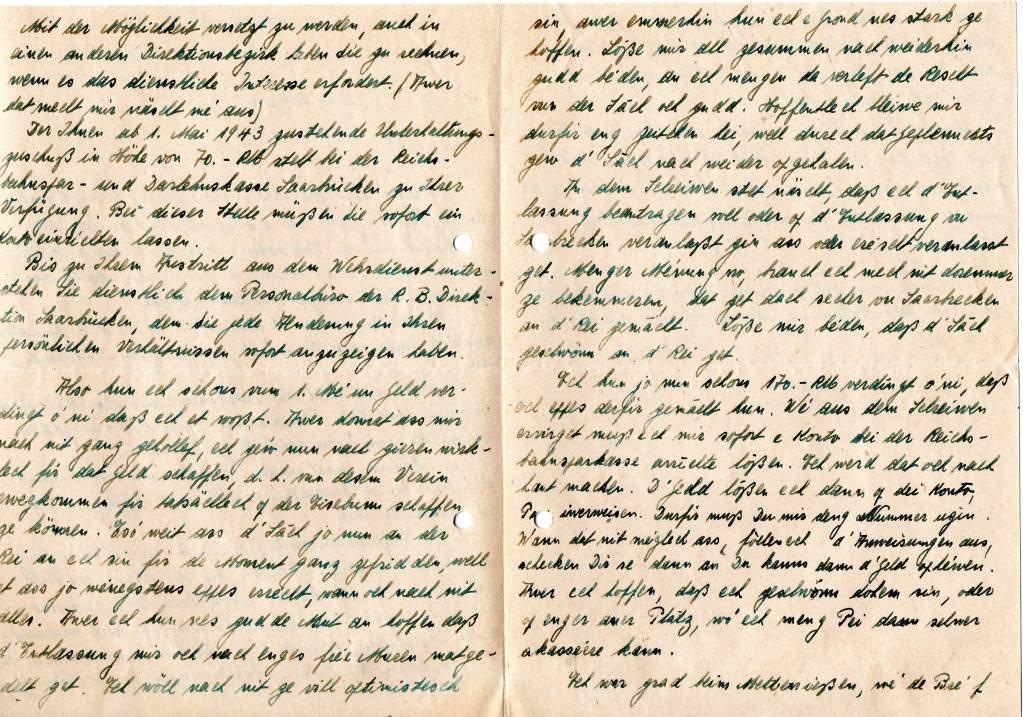 Mit der Möglichkeit versetzt zu werden, auch in
einen anderen Direktionsbezirk haben Sie zu rechnen,
wenn es das dienstliche Interesse erfordert. (Awer
dat mecht mir näscht mé aus)
Der Ihnen ab 1. Mai 1943 zustehende Unterhaltungs-
zuschuß in Höhe von 70.- RM steht bei der Reichs-
bahnspar- und Darlehnskasse Saarbrücken zu Ihrer
Verfügung. Bei dieser Stelle müßen Sie sofort ein
Konto einrichten lassen.
Bis zu Ihrem Austritt aus dem Wehrdienst unter-
stehen Sie dienstlich dem Personalbüro der R.B. Direk-
tion Saarbrücken, dem Sie jede Änderung in Ihren
persönlichen Verhältnissen sofort anzuzeigen haben.
Also hun ech schons vum 1. Mé un Geld ver-
dingt o'ni daß ech et woßt. Awer domet ass mir
nach nit ganz gehollef, ech gew nun nach gieren wirk-
lech fir dat Geld schaffen, d.h. vun desem Verein
ewegkommen fir tatsächlech of der Eisebunn schaffen
ze können. Eso' weit ass d' Säch jo nun an der
Rei an ech sin fir de Moment ganz gefridden, well
et ass jo wenegstens eppes erreecht, wann och nach nit
alles. Awer ech hun nes gudde Mut an hoffen daß
d' Entlassung mir och nach enges frei'e Muren matge-
delt get. Ech wöll nach nit ze vill optimistesch
sin, awer emmerhin hun ech e Grond nes stark ze
hoffen. Löße mir all zesummen nach weiderhin
gudd bëden, an ech mengen da verleft de Rescht
vun der Säch och gudd. Hoffentlech bleiwe mir
durfir eng Zeitchen hei, well durech dat
gew d' Säch nach weider opgehalen.
In dem Schreiwen stet näscht, daß ech d' Ent-
lassung beantragen soll oder op d' Entlassung vu
Saarbrecken veranlaßt gin ass oder eréischt veranlasst
get. Menger Ménung no, brauch ech mech nit doremmer
ze bekemmeren, dat get dach secher vu Saarbrecken
an d' Rei gemächt. Löße mir bëden, daß d' Säch
geschwönn an d' Rei get.
Ech hun jo nun schons 170.- RM verdingt o'ni, daß
ech eppes derfir gemächt hun. Wé aus dem Schreiwen
ervirget muß ech mir sofort e Konto bei der Reichs-
bahnsparkasse arrichte lößen. Ech werd dat och nach
haut machen. D' Geld lößen ech dann op dei Konto,
iwerweisen. Durfir muß Du mir deng Nummer ugin.
Wann dat nit méglech ass, föllen ech d' Anweisungen aus,
schecken Dir se' dann an Du kanns dann d' Geld ophiewen.
Awer ech hoffen, daß ech geschwönn dohem sin, oder
op enger aner Platz, wo' ech meng Pei dann selwer
akasséiere kann.
Ech wor grad beim Mettesießen, wé de Bréf